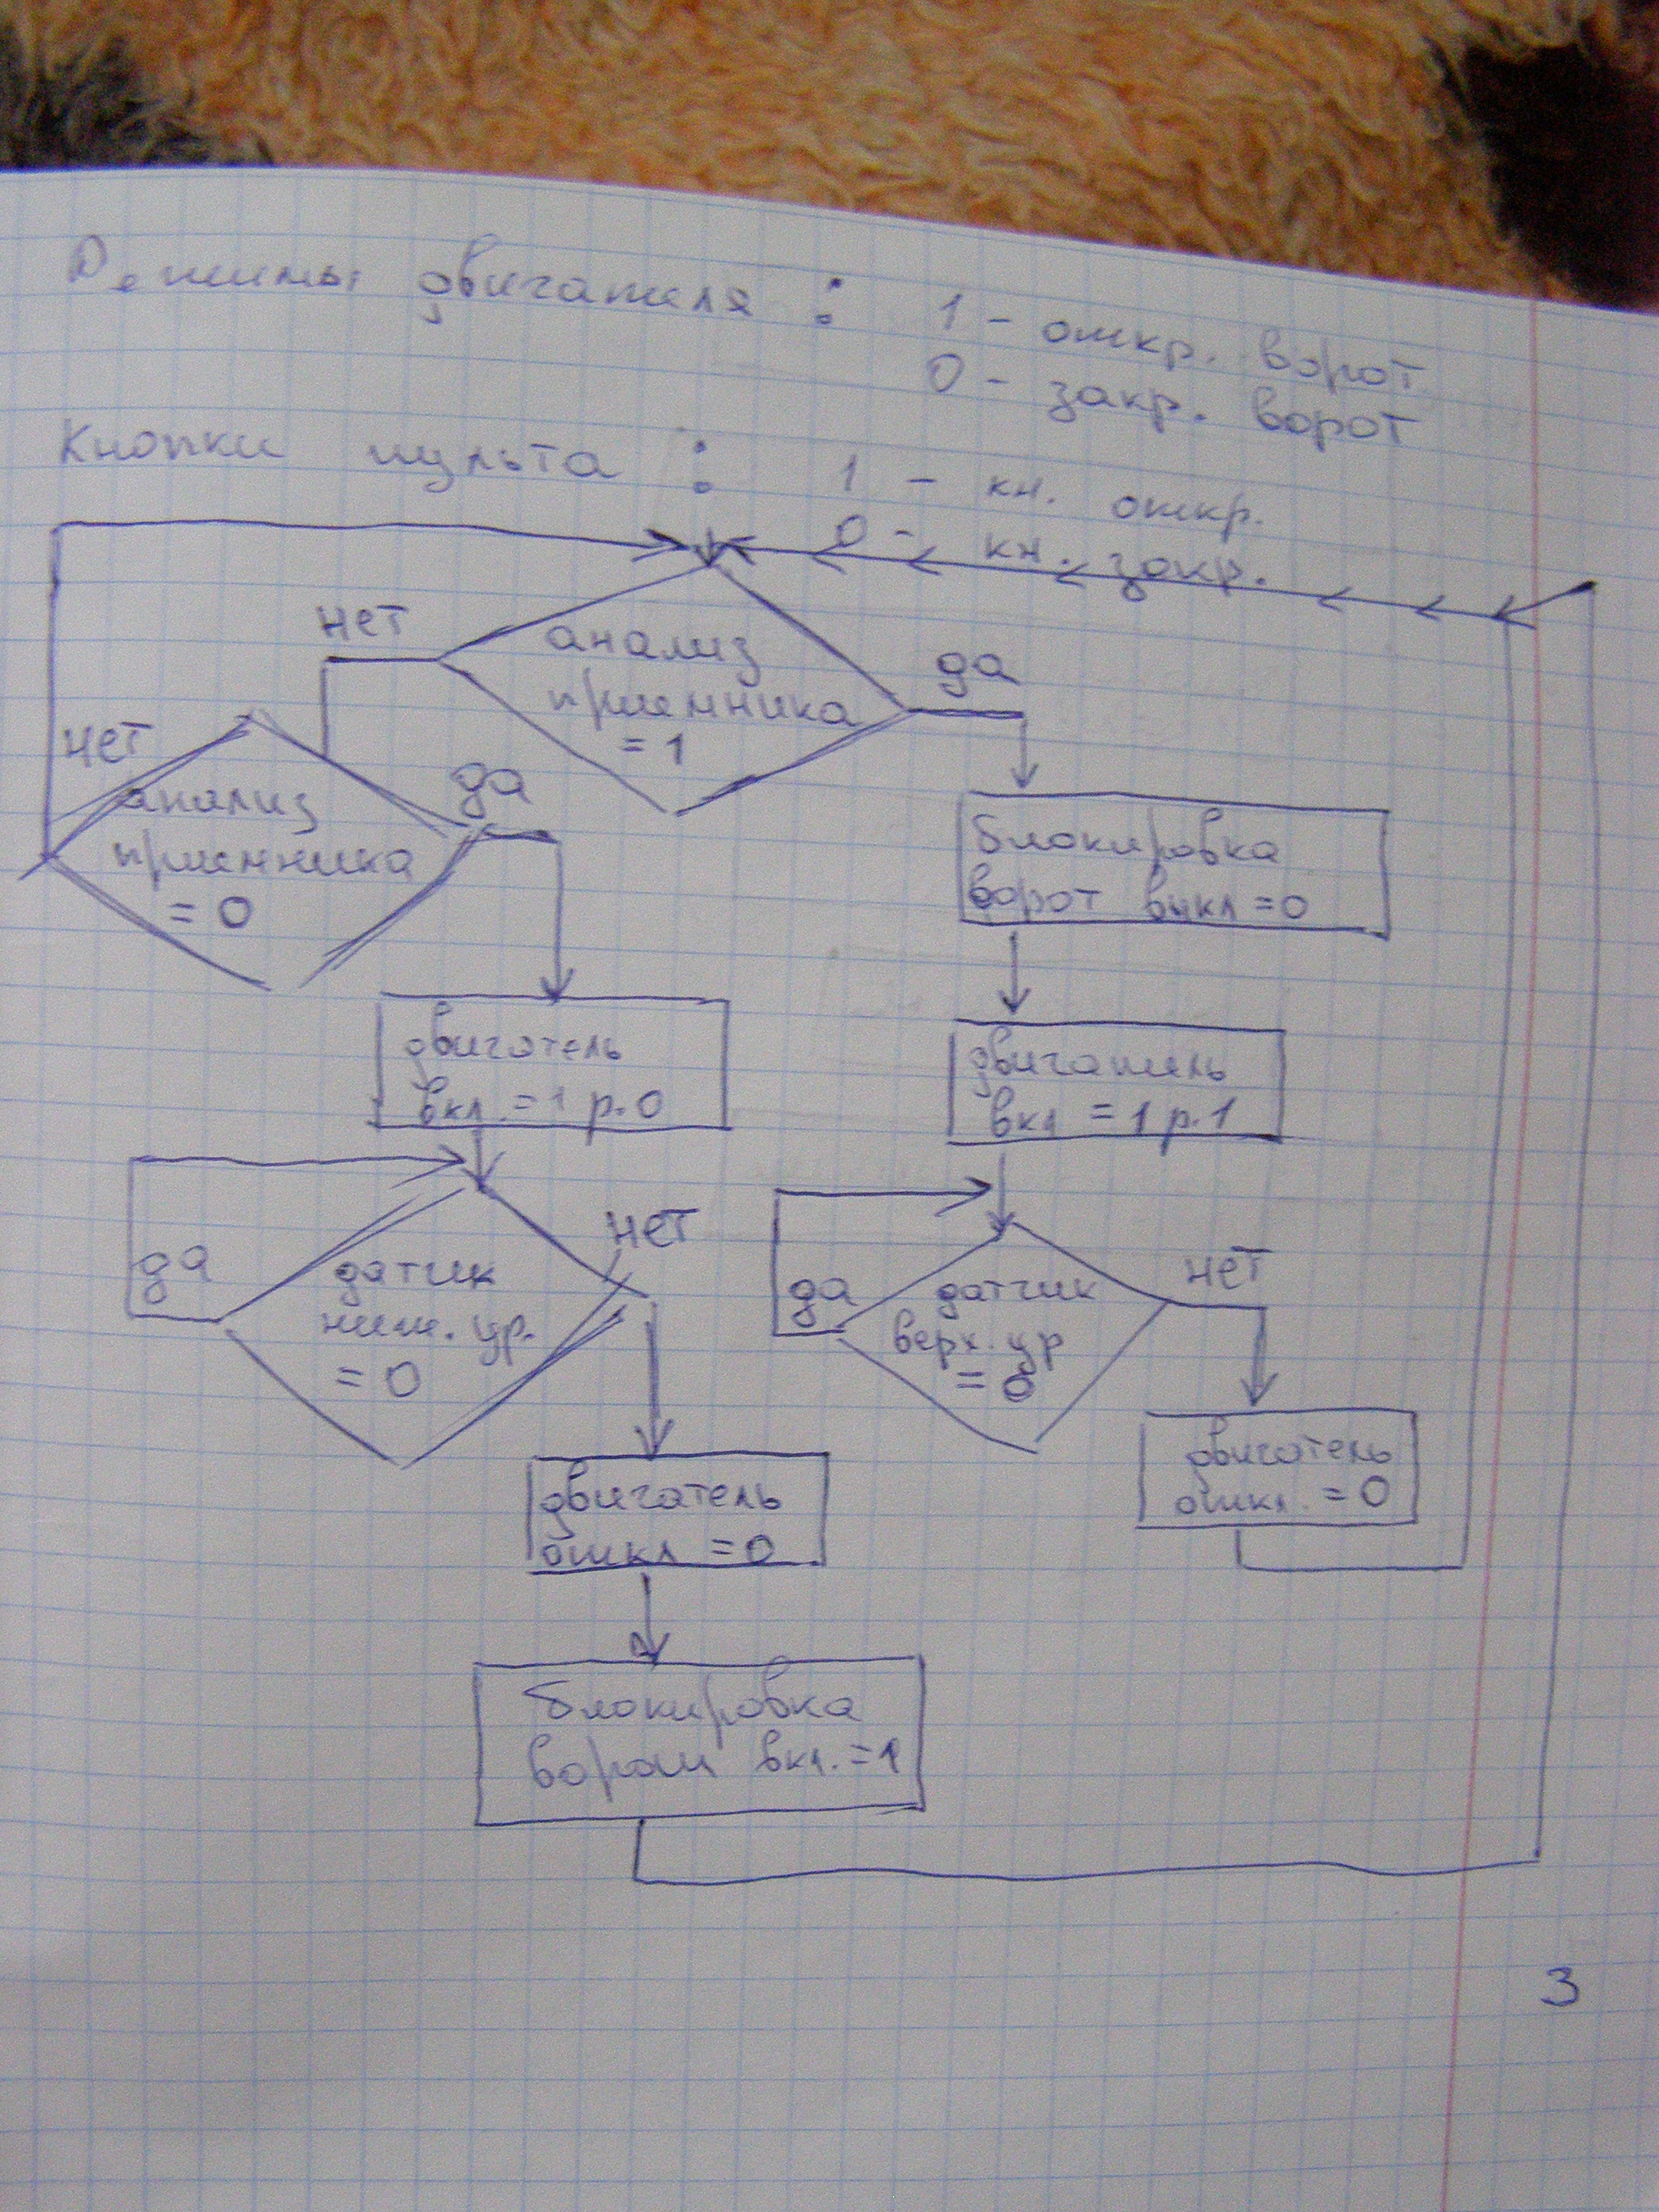 Режимы двигателя : 1 - откр. ворот
0 - закр. ворот
Кнопки пульта : 1 - кн. откр.
0 - кн. закр.
нет
анализ
приемника
= 1
да
нет
анализ
приемника
= 0
да
блокировка
ворот выкл = 0
двигатель
вкл. = 1 р. 0
двигатель
вкл = 1 р. 1
да
датчик
ниж. ур.
= 0
нет
да
датчик
верх. ур
= 0
нет
двигатель
откл = 0
двигатель
откл. = 0
блокировка
ворот вкл. = 1
3